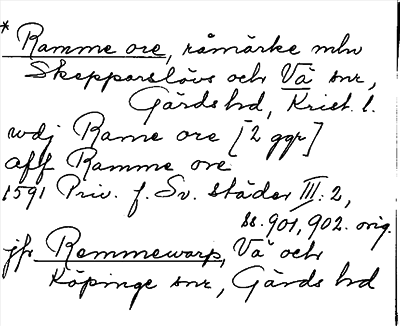 * Ramme ore, råmärke mln
Skepparslövs och Vä snr,
Gärds hd, Krist. l.
wdj Rame ore [2 ggr]
aff Ramme ore
1591 Priv. f. Sv. städer III: 2,
ss. 901, 902. orig.
jfr Remmewarp, Vä och
Köpinge snr, Gärds hd